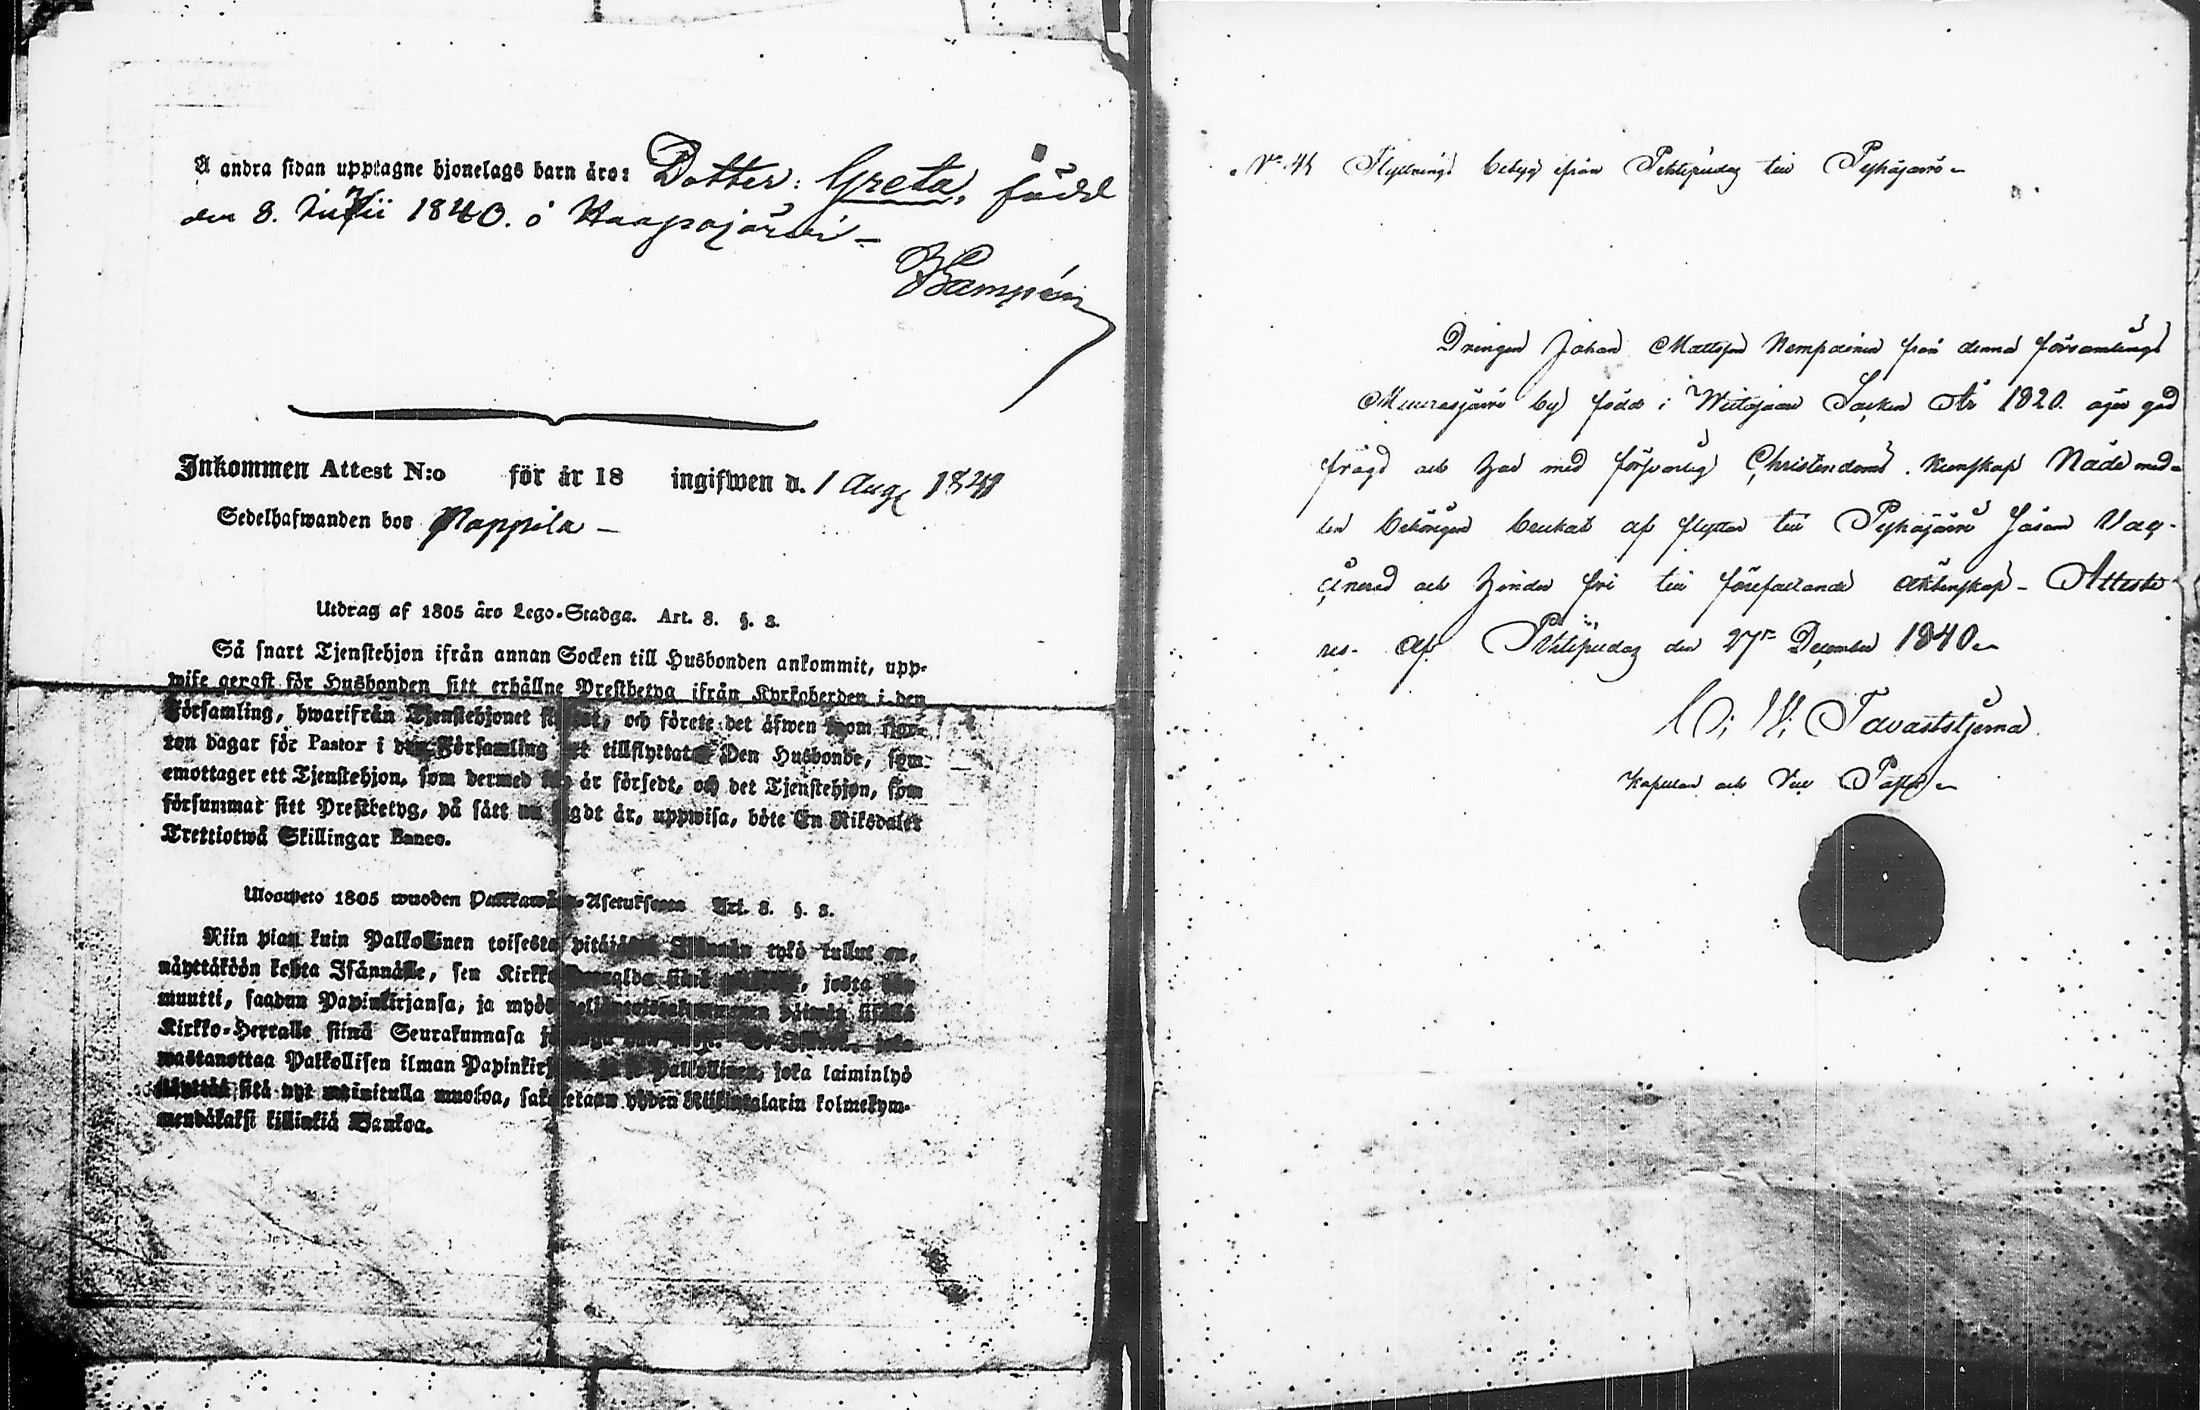 Å andra sidan upptagne hjonelags barn äro: Dotter: Greta, född
den 8. Junii 1840. i Haapajärwi –
Kampén
Inkommen Attest N:o för år 18 ingifwen d. 1 Aug 1841
Sedelhafwanden bor Pappila –
Utdrag af 1805 års Lego-Stadga. Art. 8. §. 3.
Så snart Tjenstehjon ifrån annan Socken till Husbonden ankommit, upp-
wise genast för Husbonden sitt erhållne Prestbetyg ifrån Kyrkoherden i den
Församling, hwarifrån Tjenstehjonet och förete det äfwen inom fjor-
ton dagar för Pastor i den Församling det tillflyttat. Den Husbonde, som
emottager ett Tjenstehjon, som dermed är försedt, och det Tjenstehjon, som
försummar sitt Prestbetyg, på sätt nu sagdt är, uppwisa, böte En Riksdaler
Trettiotwå Skillingar Banco.
Ulosweto 1805 wuoden Palkkawäen-Asetuksesta Art. 8. §. 3.
Niin pian kuin Palkollinen toisesta pitäjästä Isännän tykö tullut on,
näyttäköön kohta Isännälle, sen Kirkko josta hän
muutti, saadun Papinkirjansa, ja myös sisällä
Kirkko-Herralle siinä Seurakunnasa
wastanottaa Palkollisen ilman Papinkirjaa, Palkollinen, joka laiminlyö
näyttää sitä nyt mainitulla muotoa, sakotetaan yhden Riikintalarin kolmekym-
mendäkaksi killinkiä Bankoa.
N:o 45 Flyttnings betyg ifrån Pihtipudas till Pyhäjärvi –
Drengen Johan Mattsson Kemppainen från denna församlings
Muurasjärvi by född i Wiitasaari Socken År 1820. äger god
frägd och har med försvarlig Christendoms kunskap Nådemed-
len behörigen brukat af flyttar till Pyhäjärvi såsom Vac-
cinerad och hinder fri till förefallande äktenskap – Atteste-
res. af Pihtipudas den 27de December 1840 –
C: W: Tavaststjerna
Kapellan och Vice Pastor –